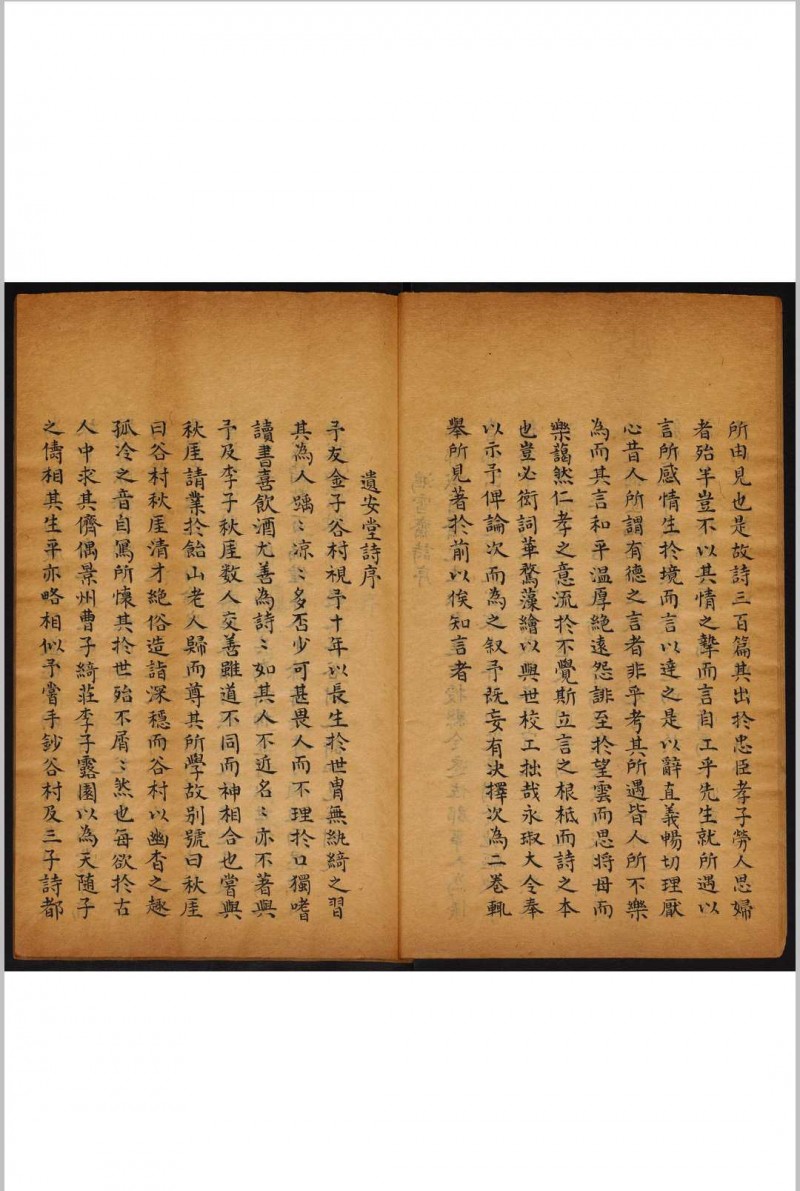 所由見也是故詩三百篇其出於忠臣孝子勞人思婦
者殆半豈不以其情之摯而言自工乎先生就所遇以
言所感情生於境而言以達之是以辭直義暢切理厭
心昔人所謂有德之言者非乎考其所遇皆人所不樂
為而其言和平溫厚絕遠怨誹至於望雲而思將母而
樂藹然仁孝之意流於不覺斯立言之根柢而詩之本
也豈必銜詞華騖藻繪以與世校工拙哉永琡大令奉
以示予俾論次而為之叙予既妄有決擇次為二卷輒
舉所見著於前以俟知言者
遺安堂詩序
予友金子谷村視予十年以長生於世胄無紈綺之習
其為人踽〻涼〻多否少可甚畏人而不理於口獨嗜
讀書喜飲酒尤善為詩〻如其人不近名〻亦不著與
予及李子秋厓數人交善雖道不同而神相合也嘗與
秋厓請業於飴山老人歸而尊其所學故别號曰秋厓
曰谷村秋厓清才絕俗造詣深穩而谷村以幽杳之趣
孤冷之音自寫所懷其於世殆不屑〻然也每欲於古
人中求其儕偶景州曹子綺莊李子露園以為天随子
之儔相其生平亦略相似予嘗手鈔谷村及三子詩都